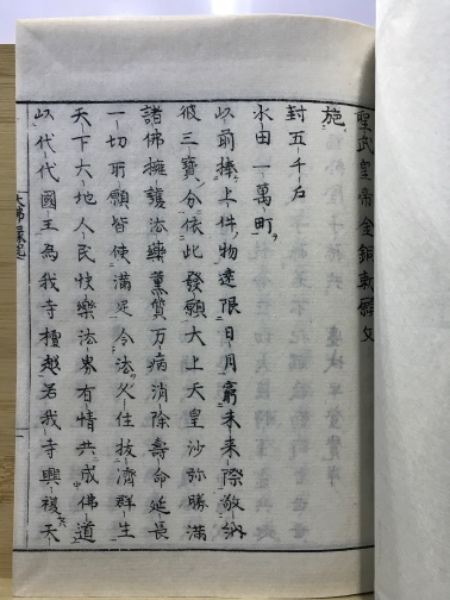 聖武皇帝金銅勅願文
施
封五千戸
水田一萬町
以前捧上件物遠限日月窮未来際敬納
彼三寳分依此發願大上天皇沙弥勝滿
諸佛擁護法藥薫質万病消除壽命延長
一切所願皆使滿足令法久住抜濟群生
天下大地人民快樂法界有情共成佛道
以代代國王為我寺檀越若我寺興複天
大佛縁起